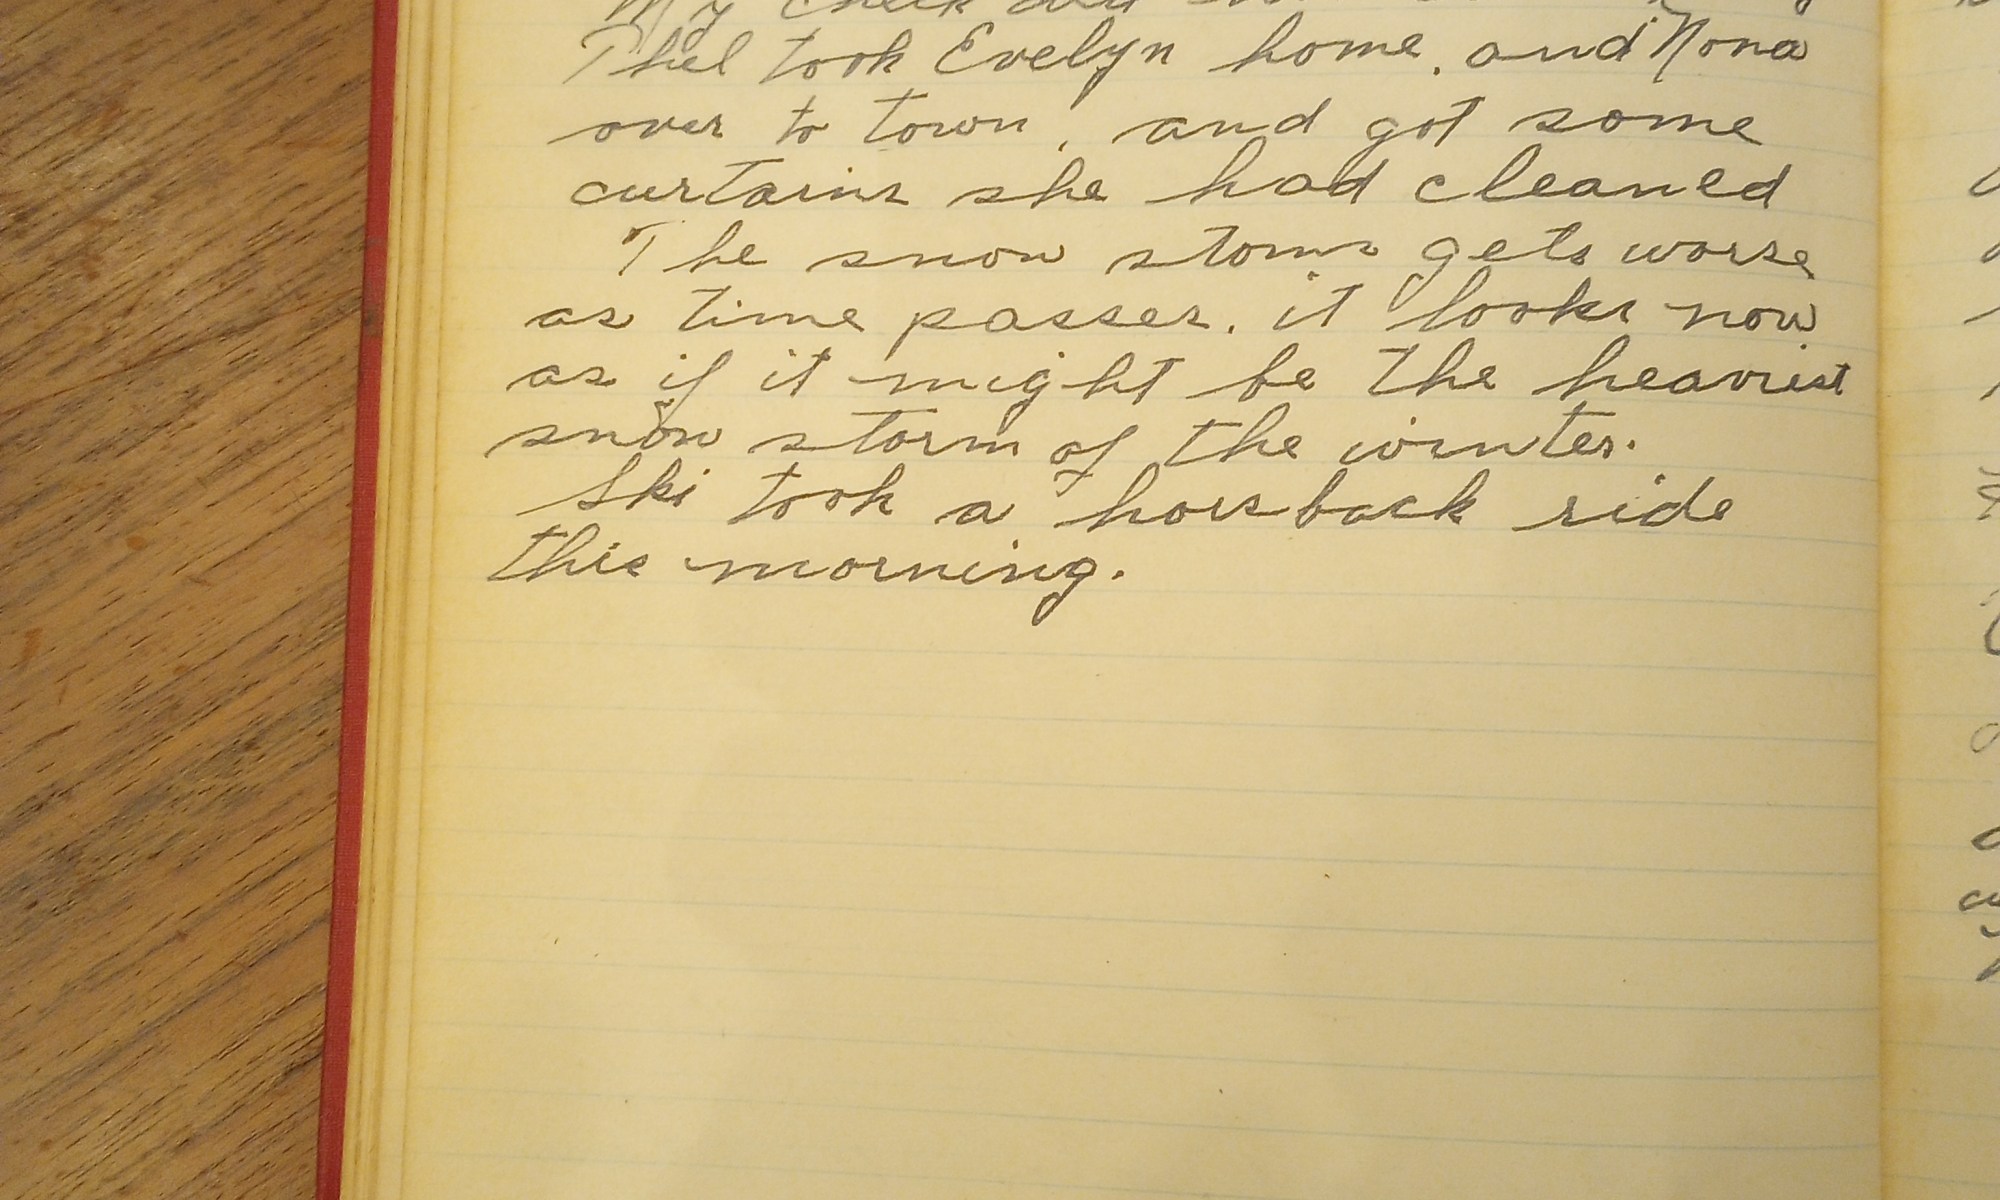 My check did
Phel took Evelyn home, and Nona
over to town, and got some
curtains she had cleaned
The snow storm gets worse
as time passes. it looks now
as if it might be the heaviest
snow storm of the winter.
Ski took a horsback ride
this morning.